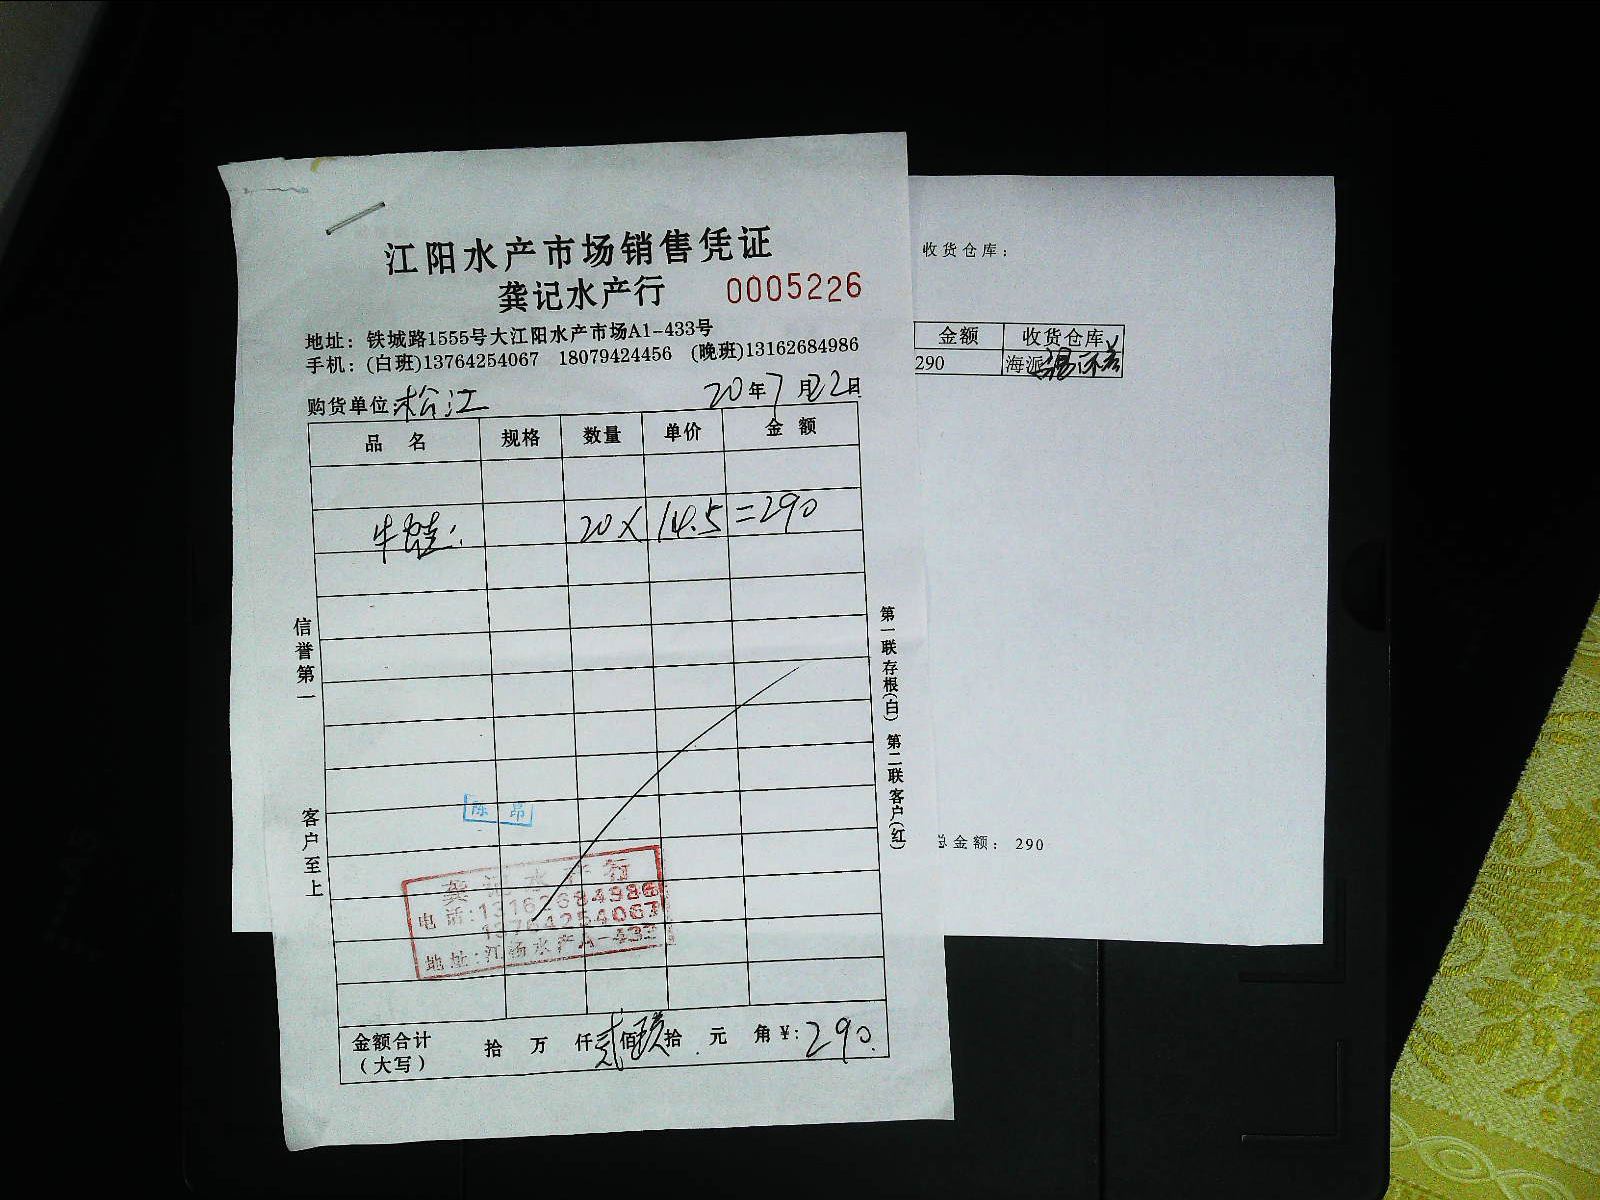 江阳水产市场销售凭证
龚记水产行 0005226
地址：铁城路1555号大江阳水产市场A1-433号
手机：(白班)13764254067 18079424456 (晚班)13162684986
购货单位：松江 20年7月22日
品名 规格 数量 单价 金额
牛蛙： 20× 14.5 =290
信誉第一 客户至上
第一联存根(白) 第二联客户(红)
陈昂
龚记水产行
电话:13162684986
13764254067
地址:江杨水产A-433
金额合计(大写) 拾 万 仟 贰佰 玖拾 元 角 ¥:290.
收货仓库：
金额 收货仓库
290 海派
总金额： 290